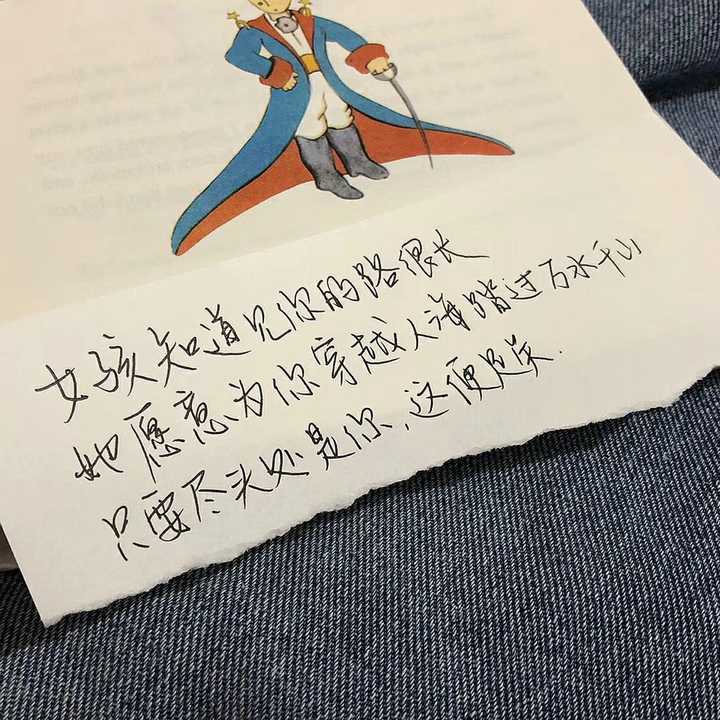 女孩知道见你的路很长
她愿意为你穿越人海踏过万水千山
只要尽头处是你，这便足矣.